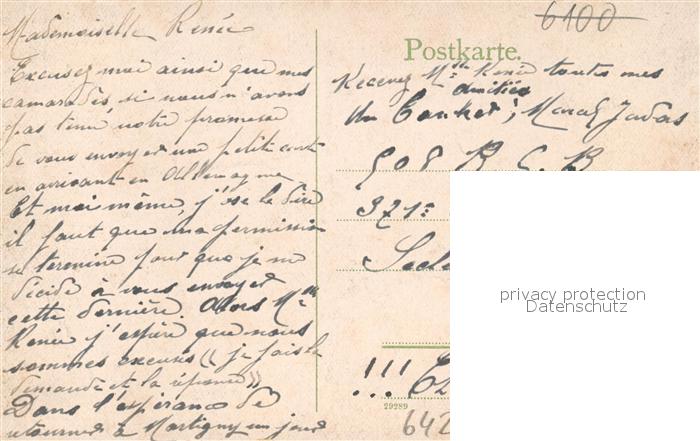 Mademoiselle Renée
Excusez moi ainsi que mes
camarades, si nous n'avons
pas tenu notre promesse
de vous envoyer une petite carte
en arrivant en Allemagne.
Et moi même, j'ose le dire
il faut que ma permission
se termine pour que je me
décide à vous envoyer
cette dernière. Alors Mlle
Renée j'espère que nous
sommes excusés (( je fais la
demande et la réponse ))
Dans l'espérance de
retourner à Martigny un jour
6100
Postkarte.
Recevez Mlle Renée toutes mes
amitiés
du Marcel
505 B C B
321
!!!
29289
642
privacy protection
Datenschutz